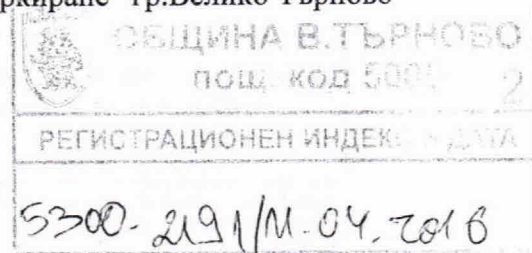 ркиране" гр.Велико Търново
ОБЩИНА В.ТЪРНОВО
пощ. код 500
2
РЕГИСТРАЦИОНЕН ИНДЕК ДАТА
5300-2191/11.04.2016